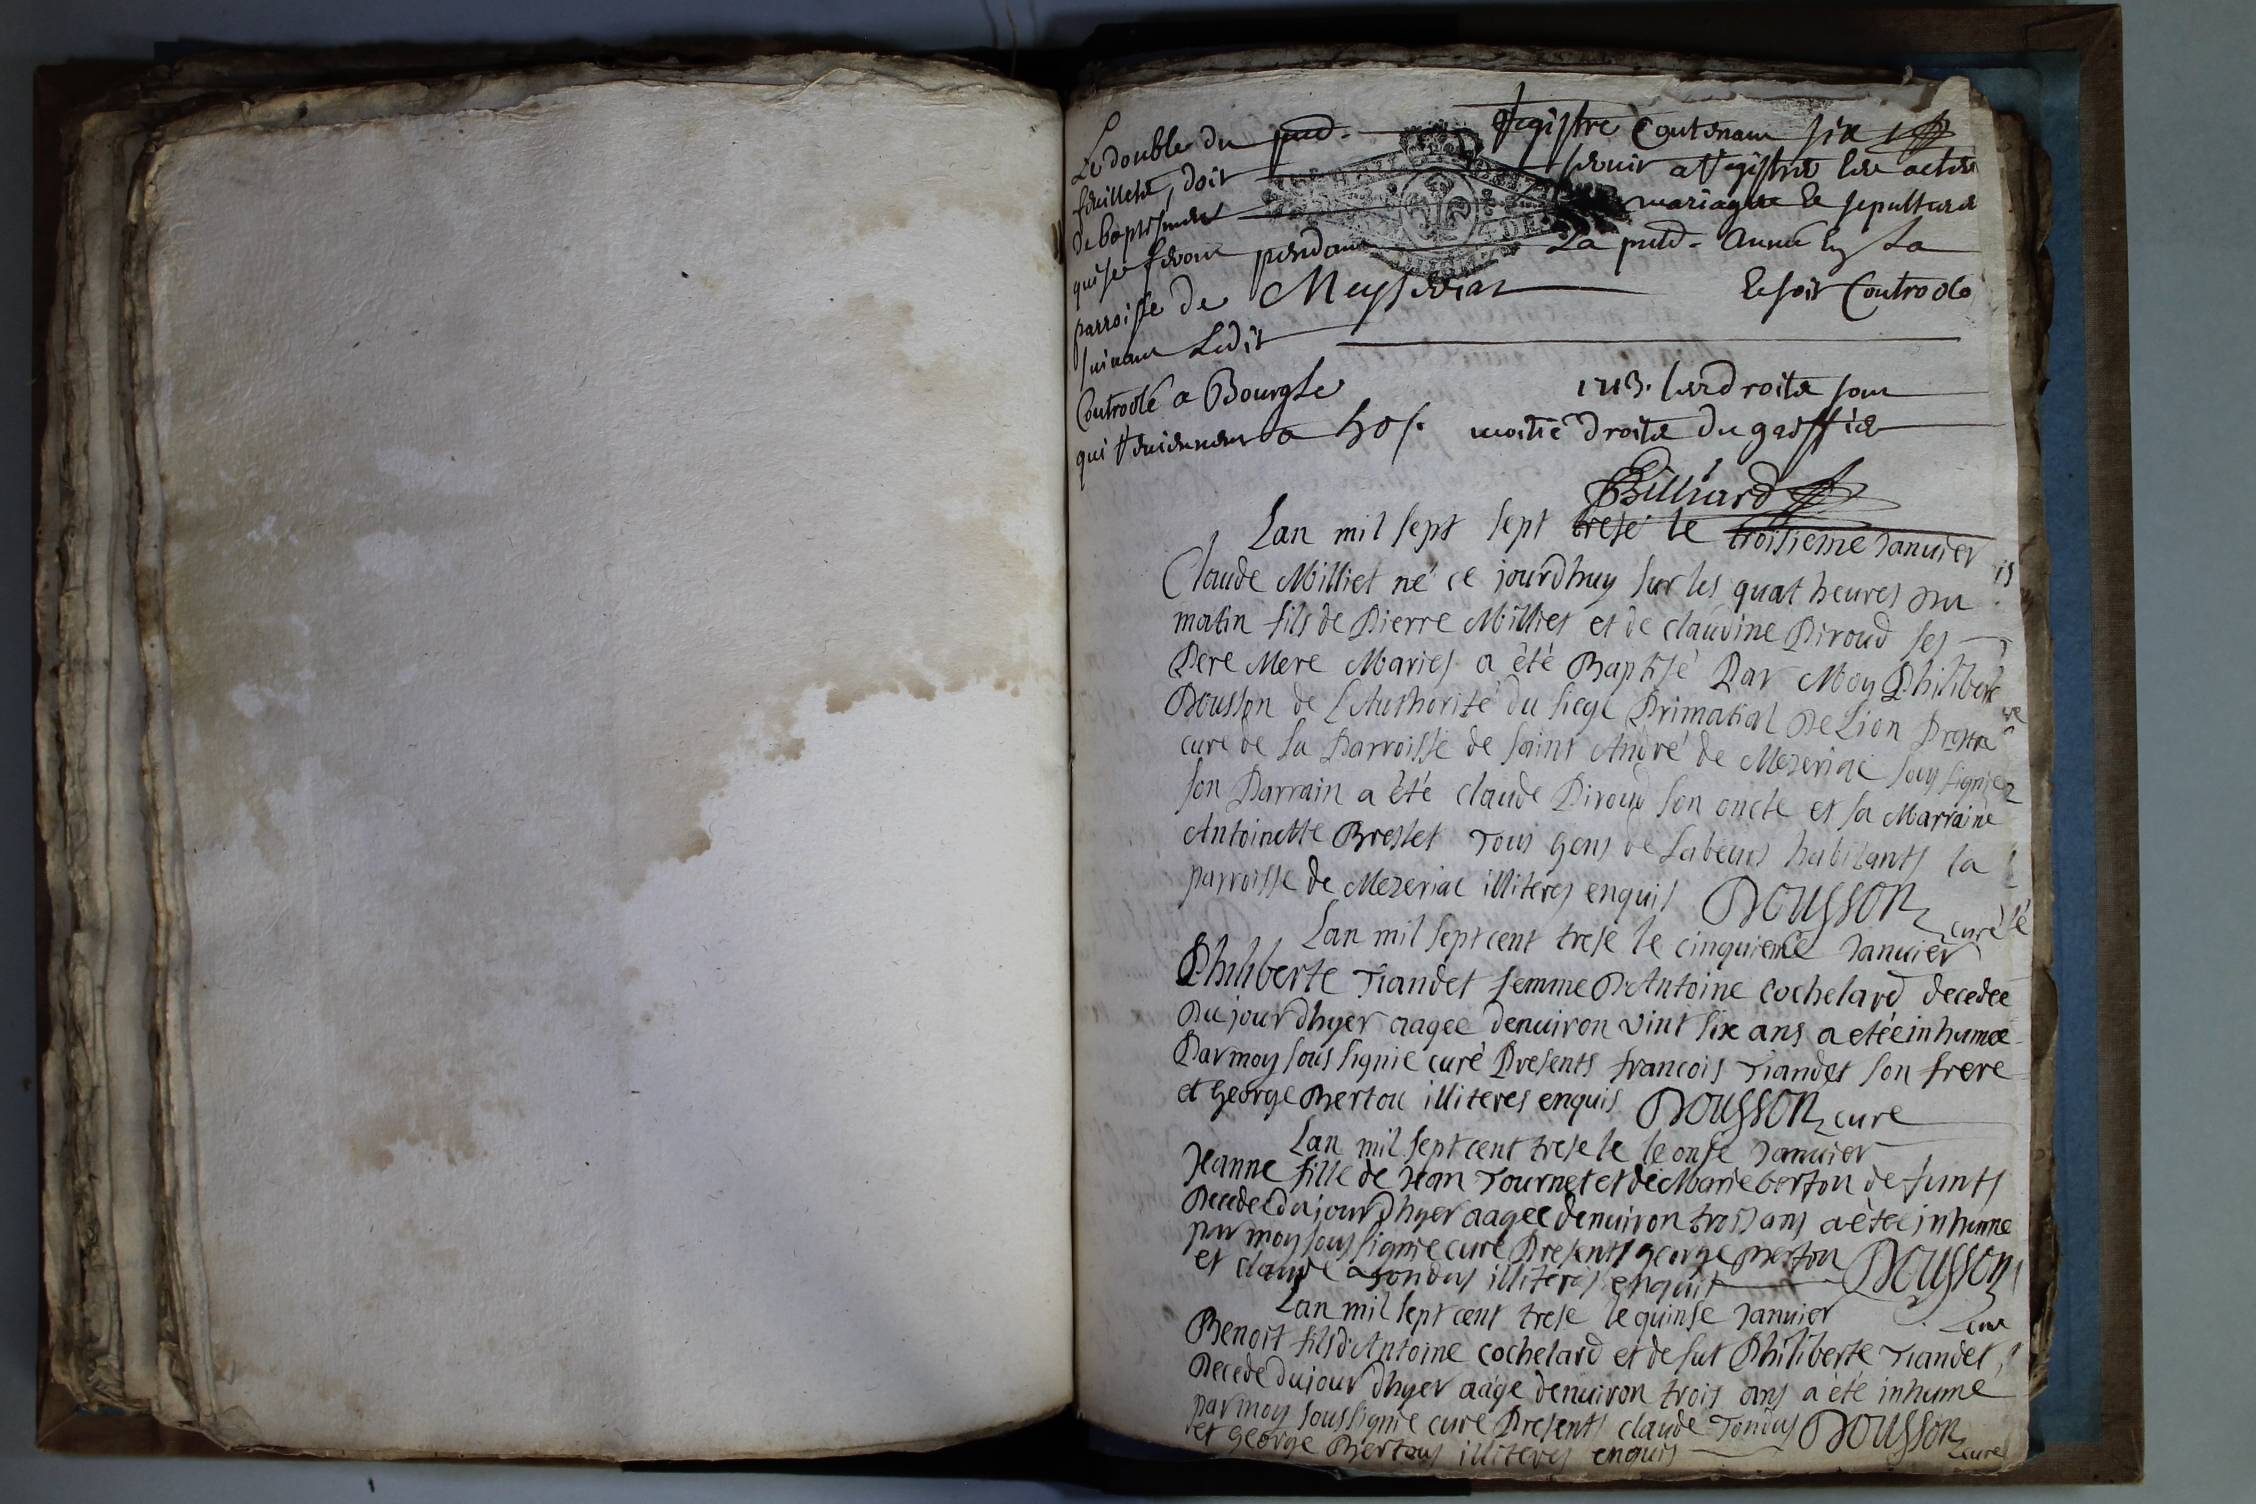 Le double du pnt. Registre Contenant six
feuillets, doit servir a Registrer les actes
de baptesmes mariages & sepultures
qui se feront pendant La pnte. année En La
parroisse de Meyseriat Et soit Controolé
suivant Ledit
Controolé a Bourg Le 1713. les droits sont
qui reviennent a 50 s. moitié droits du greffier
Billiard
Lan mil sept sept trese le troisieme Janvier
Claude Milliet né ce jourdhuy sur les quat heures du
matin fils de Pierre Milliet et de claudine Piroud ses
Pere Mere Maries a èté Baptisé Par Moy Philibert
Dousson de LAuthorité du siege Primatial De Lion Prestre
curé de la Parroisse de saint André de Mezeriac sous signiez
son Parrain a èté claude Piroud son oncle et sa Marraine
Antoinette Breslet Tous gens de Labeurs habitants la
parroisse de Mezeriac illiteres enquis DOUSSON curé
Lan mil sept cent trese le cinquieme Janvier
Philiberte Tiandet femme D'Antoine Cochelard decedeé
Du jour dhyer aageé denviron vint six ans a eteé inhumeé
Par moy sous signié curé Presents francois Tiandet son frere
et george Berton illiteres enquis DOUSSON curé
Lan mil sept cent trese le le onse Janvier
Jeanne fille de Jean Tournet et de Marie berton defunts
Decedeé du jour dhyer aageé denviron trois ans a èteé inhumé
par moy sous signié curé Presents george Berton DOUSSON
et claude illiteres enquis curé
Lan mil sept cent trese le quinse Janvier
Benoit fils dAntoine cochelard et de fut Philiberte Tiandet
Decedé du jour dhyer aagé denviron trois ans a èté inhumé
par moy soussignié curé Presents claude Tondus DOUSSON
et george Bertous illiteres enquis curé